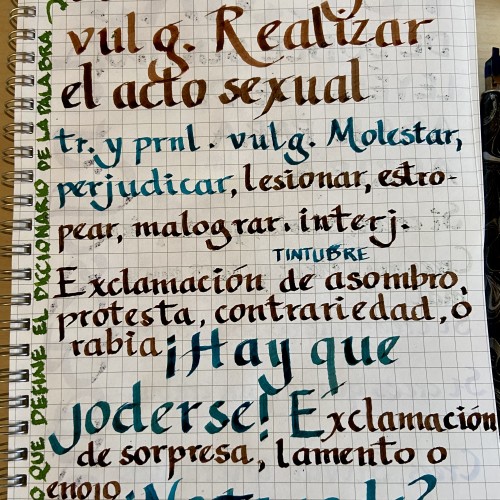 vulg. Realizar
el acto sexual
tr. y prnl. vulg. Molestar,
perjudicar, lesionar, estro-
pear, malograr. interj.
TINTUBRE
Exclamación de asombro,
protesta, contrariedad, o
rabia ¡Hay que
joderse! Exclamación
de sorpresa, lamento o
enojo
QUE DEFINE EL DICCIONARIO DE LA PALABRA